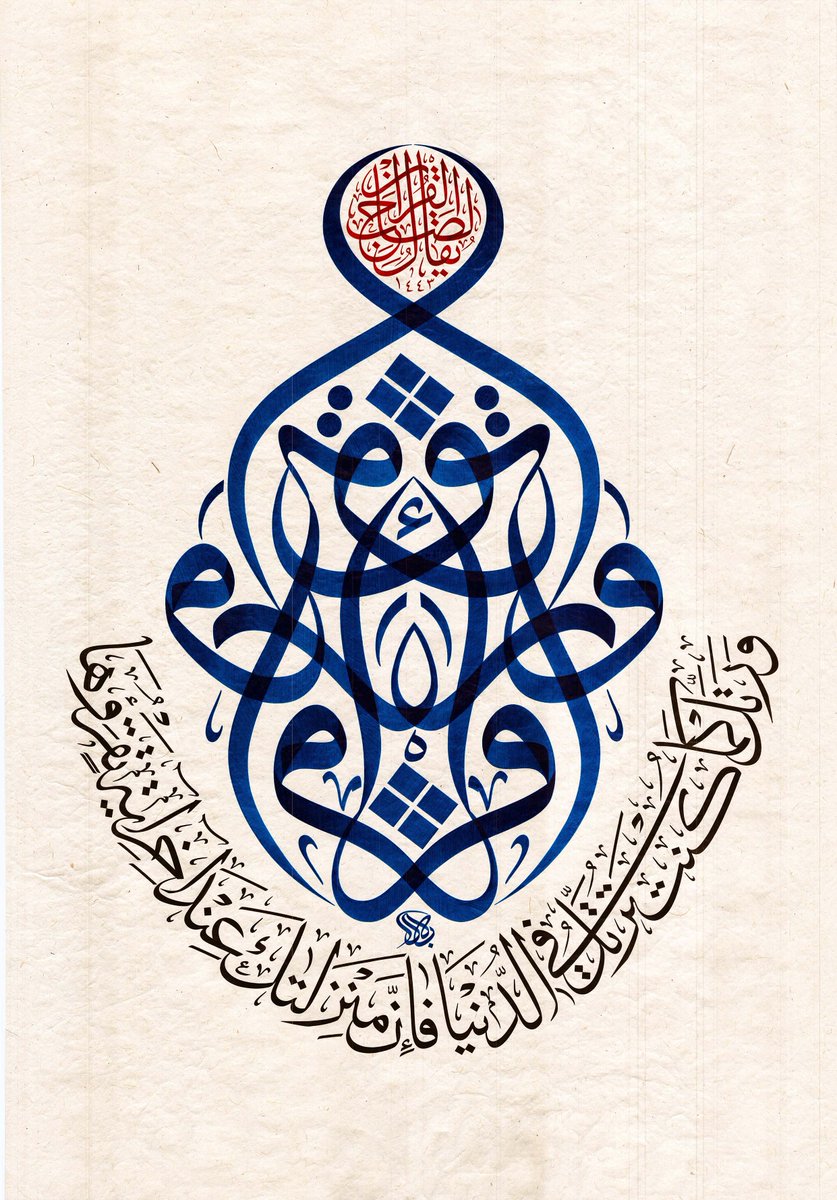 يقال لصاحب القرآن
١٤٤٣
اقرأ وارق
ورتل كما كنت ترتل في الدنيا فإن منزلتك عند آخر آية تقرؤها